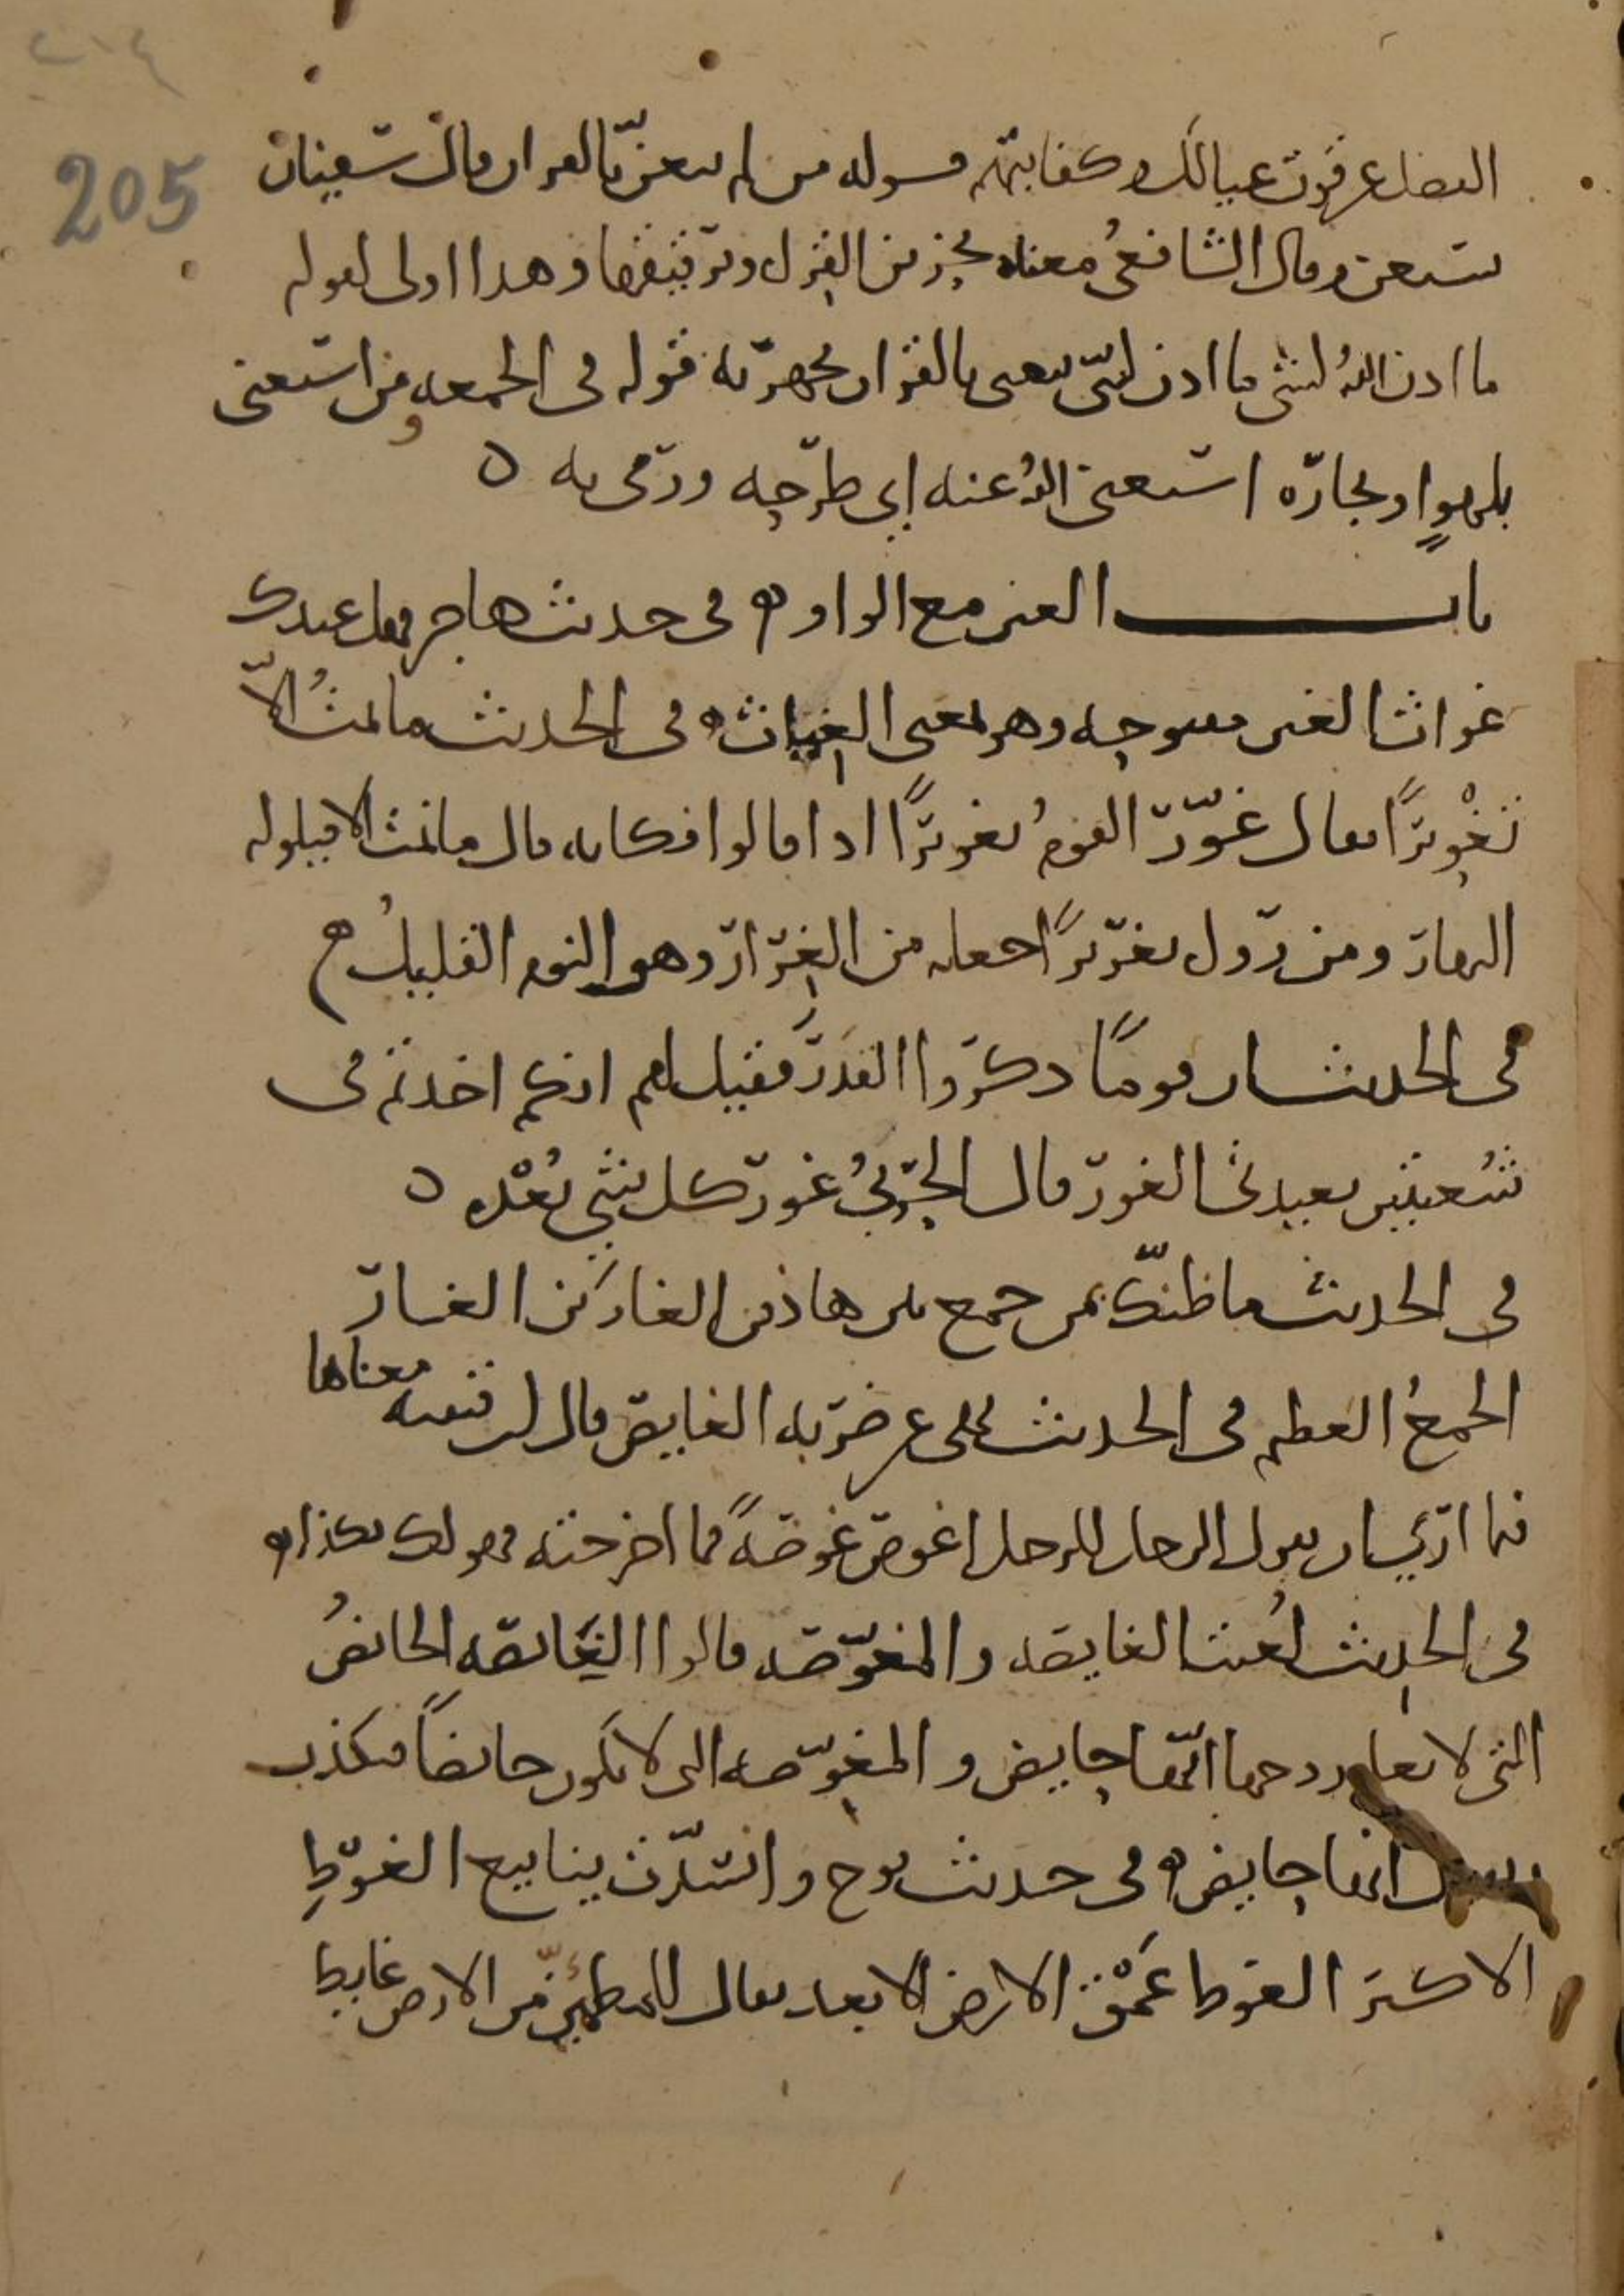 ٢٠٤
205
الفضل عن قوت عيالك وكفايتهم قوله من لم يتغنّ بالقران قال سفيان
يستغن وقال الشافعيُ معناه تحزين القِراه وترقيقها وهذا اولى لقوله
ما اذن اللهُ لشي ما اذن لنبيّ يتغنى بالقران يجهر به قوله في الجمعه ومن استغنى
بلهوٍ او تجاره استغنى اللهُ عنه اي طرحه ورمى به ه
باب الغين مع الواو ه في حديث هاجر فهل عندك
غواث الغين مفتوحه وهو بمعنى الغِياث ه في الحديث ما نمتُ الاّ
تَغْوِيرًا يقال غوّر القومُ تغويرًا اذا قالوا فكانه قال ما نمت الا قيلوله
النهار ومن روى تغريرًا جعله من الغِرار وهو النوم القليلُ ه
في الحديث ان قومًا ذكروا القَدَر فقيل لهم انكم اخذتم في
شُعبتين بعيدتي الغور قال الحربيُ غور كل شي بُعْده ه
في الحديث ما ظنّك بمن جمع بين هاذين الغارَين الغار
الجمعُ العظيم في الحديث نهى عن ضربه الغايص قال ابن قتيبه معناها
فيما ارى ان يقول الرجل للرجل اغوص غوصةً فما اخرجته فهو لك بكذا ه
في الحديث لُعنت الغايصه والمغوّصه قالوا الغَايصه الحايضُ
التي لا تعلم زوجها انّها حايض والمغوِّصه التي لا تكون حايضًا فتكذب
وتقول انها حايض ه في حديث نوح وانسدّت ينابيع الغوطِ
الاكبر الغوط عُمْق الارض الابعد يقال للمطمئِنّ من الارض غايط